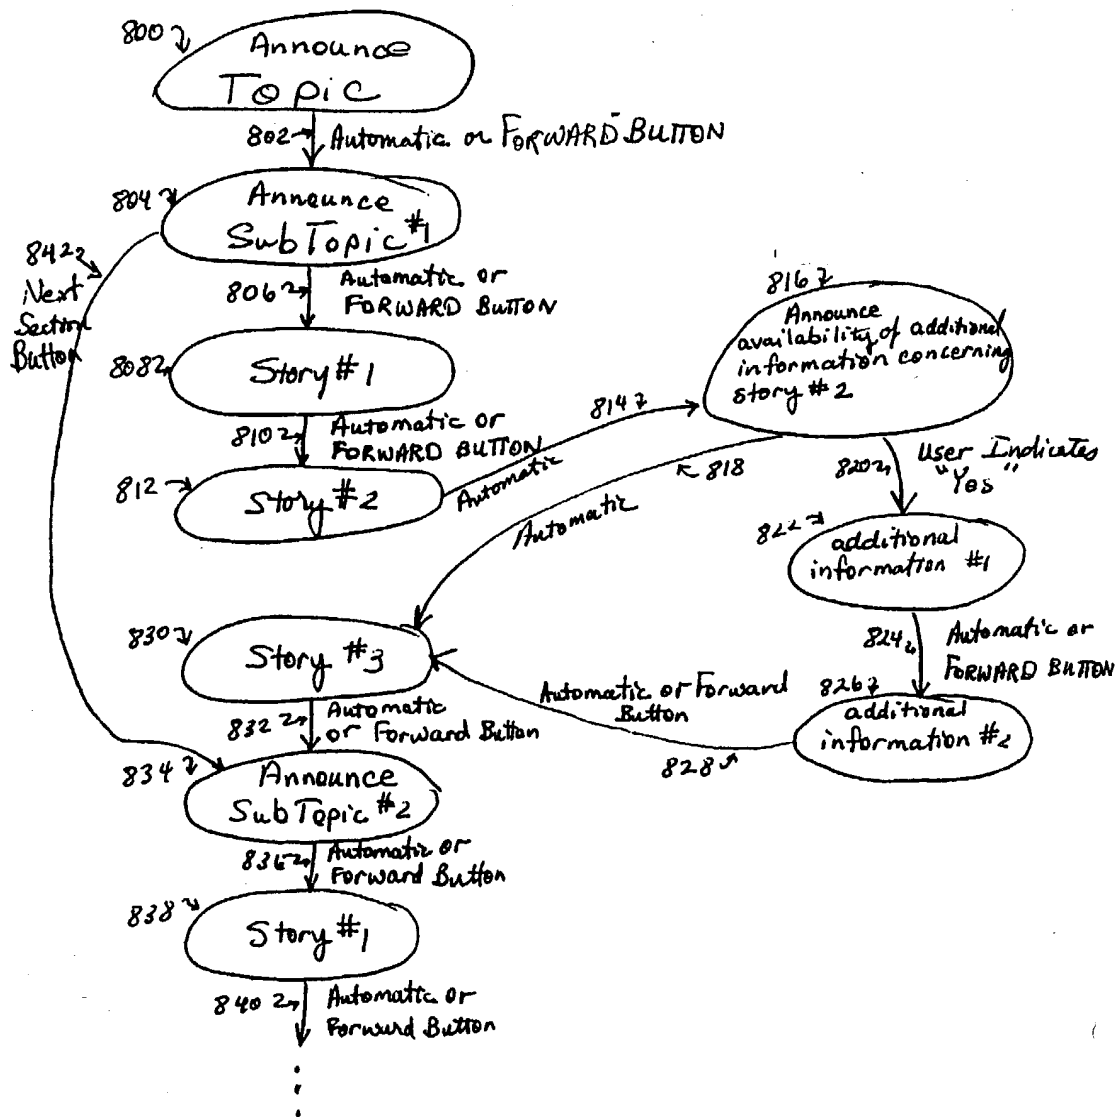 800
Announce
Topic
802
Automatic or FORWARD BUTTON
804
Announce
SubTopic #1
842
Next
Section
Button
806
Automatic or
FORWARD BUTTON
808
Story #1
810
Automatic or
FORWARD BUTTON
812
Story #2
814
Automatic
816
Announce
availability of additional
information concerning
story #2
818
Automatic
820
User Indicates
"Yes"
822
additional
information #1
824
Automatic or
FORWARD BUTTON
826
additional
information #2
828
Automatic or Forward
Button
830
Story #3
832
Automatic
or Forward Button
834
Announce
SubTopic #2
836
Automatic or
Forward Button
838
Story #1
840
Automatic or
Forward Button